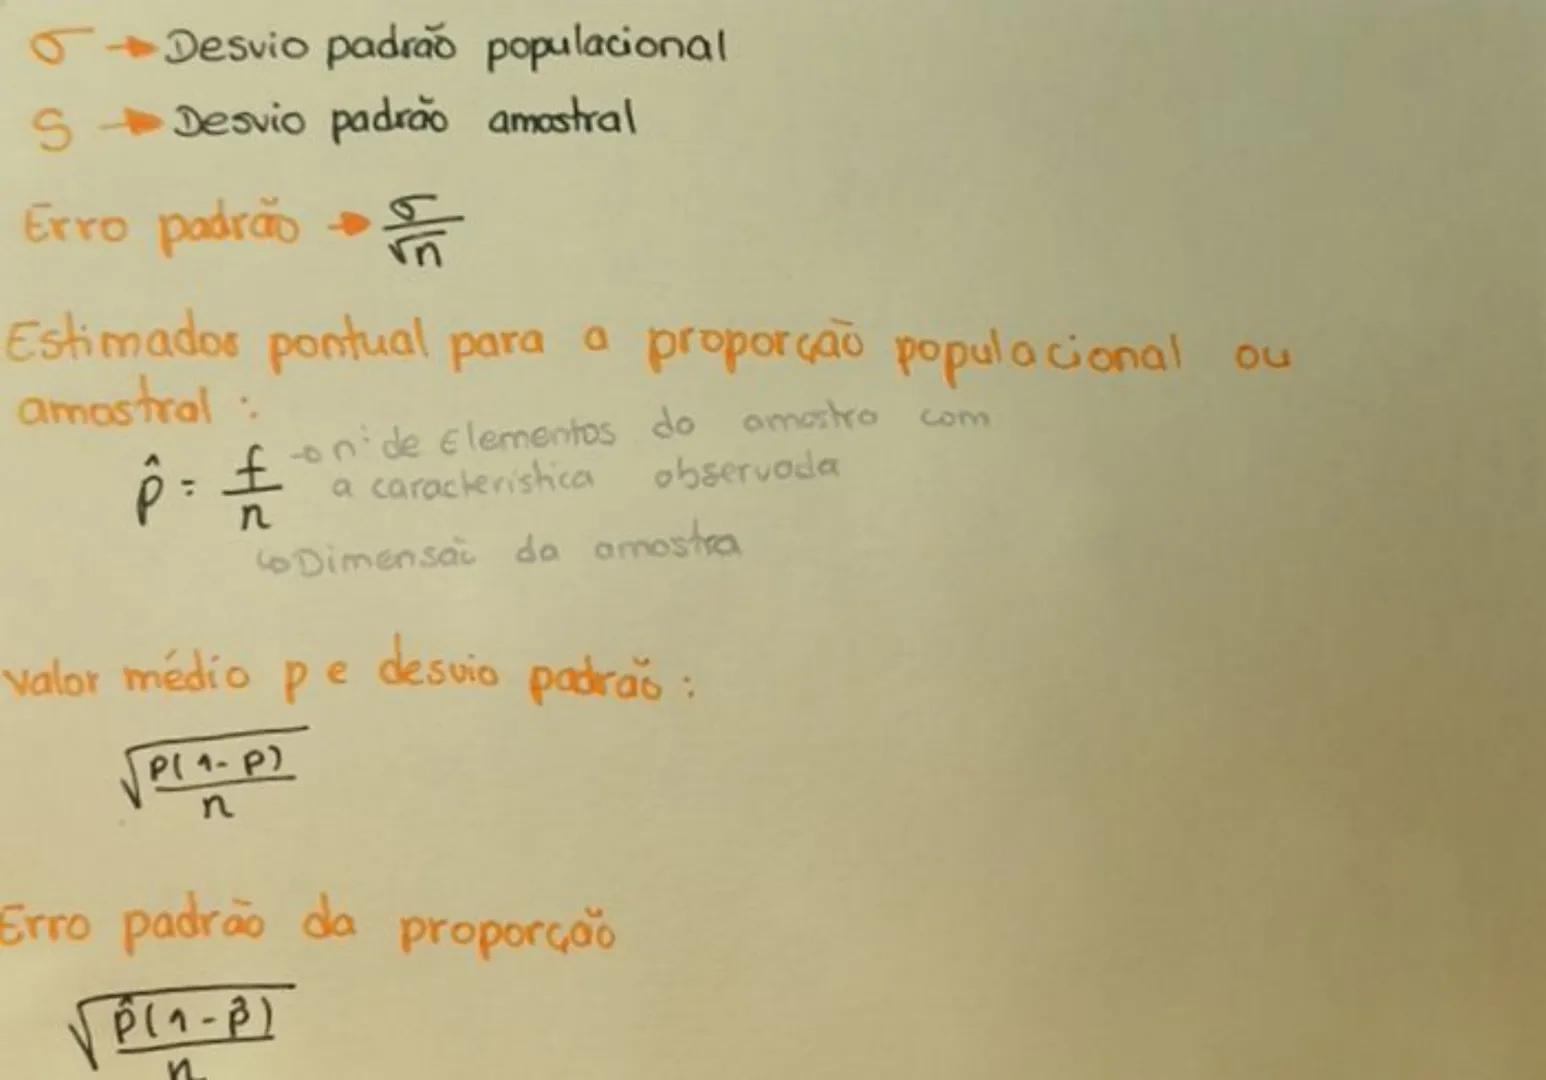 σ → Desvio padrão populacional
S → Desvio padrão amostral
Erro padrão → σ/√n
Estimados pontual para a proporção populacional ou
amostral :
p̂ = f/n → nº de Elementos da amostra com
a característica observada
↳ Dimensão da amostra
Valor médio p e desvio padrão :
√(p(1-p)/n)
Erro padrão da proporção
√(p̂(1-p̂)/n)